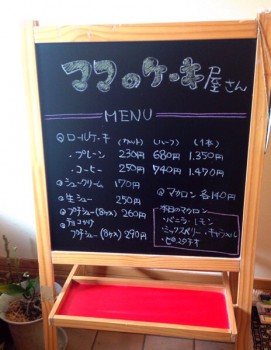 ママのケーキ屋さん
MENU
◎ロールケーキ (カット) (ハーフ) (1本)
・プレーン 230円 680円 1.350円
・コーヒー 250円 740円 1.470円
◎シュークリーム 170円
◎生シュー 250円
◎プチシュー(8ヶ入) 260円
◎チョコがけ
プチシュー(8ヶ入) 290円
◎マカロン 各140円
本日のマカロン
・バニラ・レモン
・ミックスベリー・キャラメル
・ピスタチオ